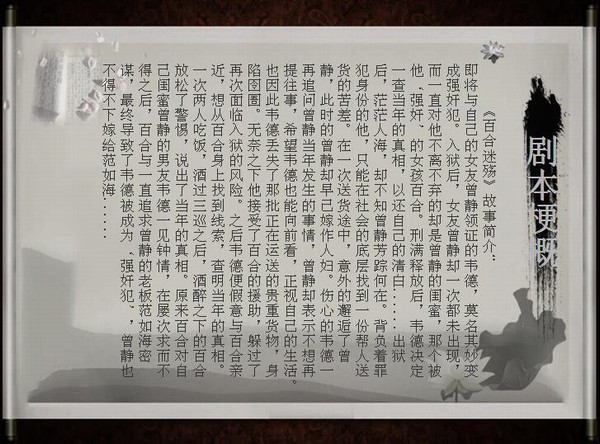 剧本梗概
《百合迷殇》故事简介:
即将与自己的女友曾静领证的韦德，莫名其妙变
成强奸犯。入狱后，女友曾静却一次都未出现，
而一直对他不离不弃的却是曾静的闺蜜，那个被
他“强奸”的女孩百合。刑满释放后，韦德决定
一查当年的真相，以还自己的清白......出狱
后，茫茫人海，却不知曾静芳踪何在。背负着罪
犯身份的他，只能在社会的底层找到一份帮人送
货的苦差。在一次送货途中，意外的邂逅了曾
静，此时的曾静却早已嫁作人妇。伤心的韦德一
再追问曾静当年发生的事情，曾静却表示不想再
提往事，希望韦德也能向前看，正视自己的生活。
也因此韦德丢失了那批正在运送的贵重货物，身
陷囹圄。无奈之下他接受了百合的援助，躲过了
再次面临入狱的风险。之后韦德便假意与百合亲
近，想从百合身上找到线索，查明当年的真相。
一次两人吃饭，酒过三巡之后，酒醉之下的百合
放松了警惕，说出了当年的真相。原来百合对自
己闺蜜曾静的男友韦德一见钟情，在屡次求而不
得之后，百合与一直追求曾静的老板范如海密
谋，最终导致了韦德被成为“强奸犯”，曾静也
不得不下嫁给范如海......